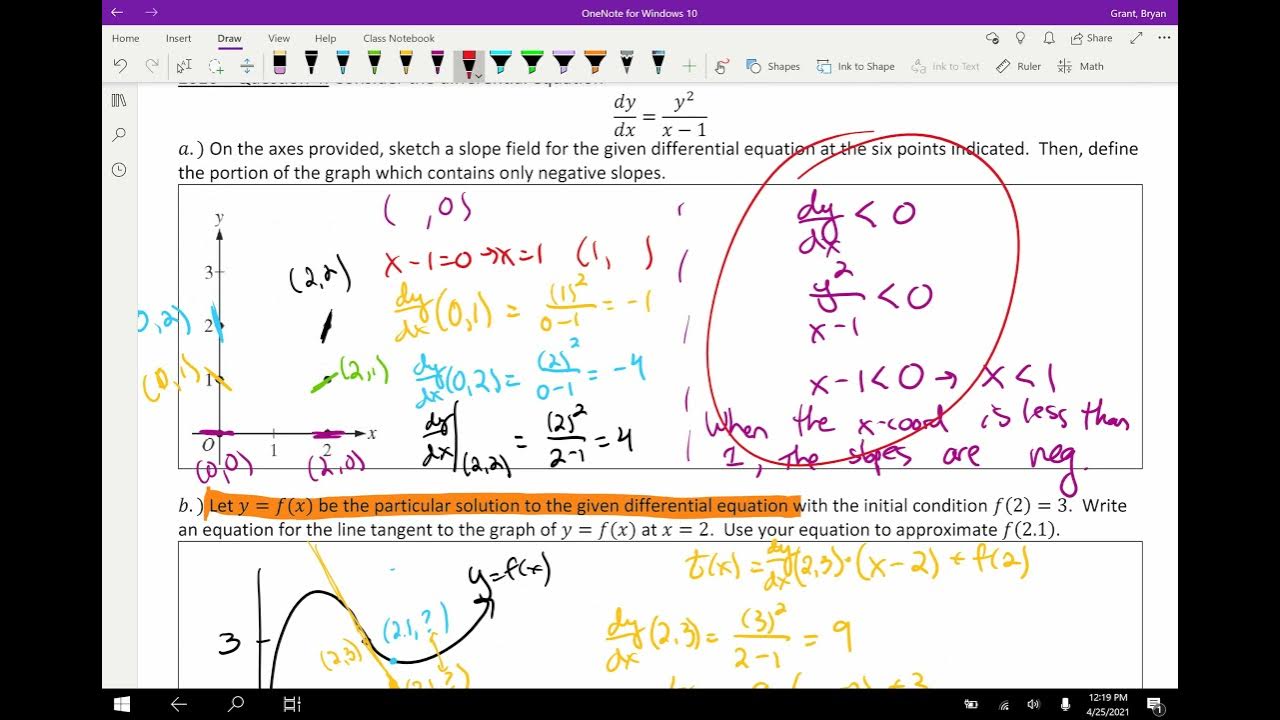 OneNote for Windows 10
Grant, Bryan
Home Insert Draw View Help Class Notebook
Share
Shapes Ink to Shape Ink to Text Ruler Math
dy/dx = y²/(x − 1)
a.) On the axes provided, sketch a slope field for the given differential equation at the six points indicated. Then, define
the portion of the graph which contains only negative slopes.
y
3
2
1
O 1 2 x
(2,2)
0,2)
(0,1)
(2,1)
(0,0) (2,0)
( ,0)
x-1=0 → x=1 (1, )
dy/dx (0,1) = (1)²/(0-1) = -1
dy/dx (0,2) = (2)²/(0-1) = -4
dy/dx |(2,2) = (2)²/(2-1) = 4
dy/dx < 0
y²/(x-1) < 0
x-1<0 → x<1
When the x-coord is less than
1, the slopes are neg.
b.) Let y = f(x) be the particular solution to the given differential equation with the initial condition f(2) = 3. Write
an equation for the line tangent to the graph of y = f(x) at x = 2. Use your equation to approximate f(2.1).
y=f(x)
3
(2,3)
(2.1,?)
(2.1,?)
t(x) = dy/dx (2,3)·(x-2) + f(2)
dy/dx (2,3) = (3)²/(2-1) = 9
12:19 PM
4/25/2021
1